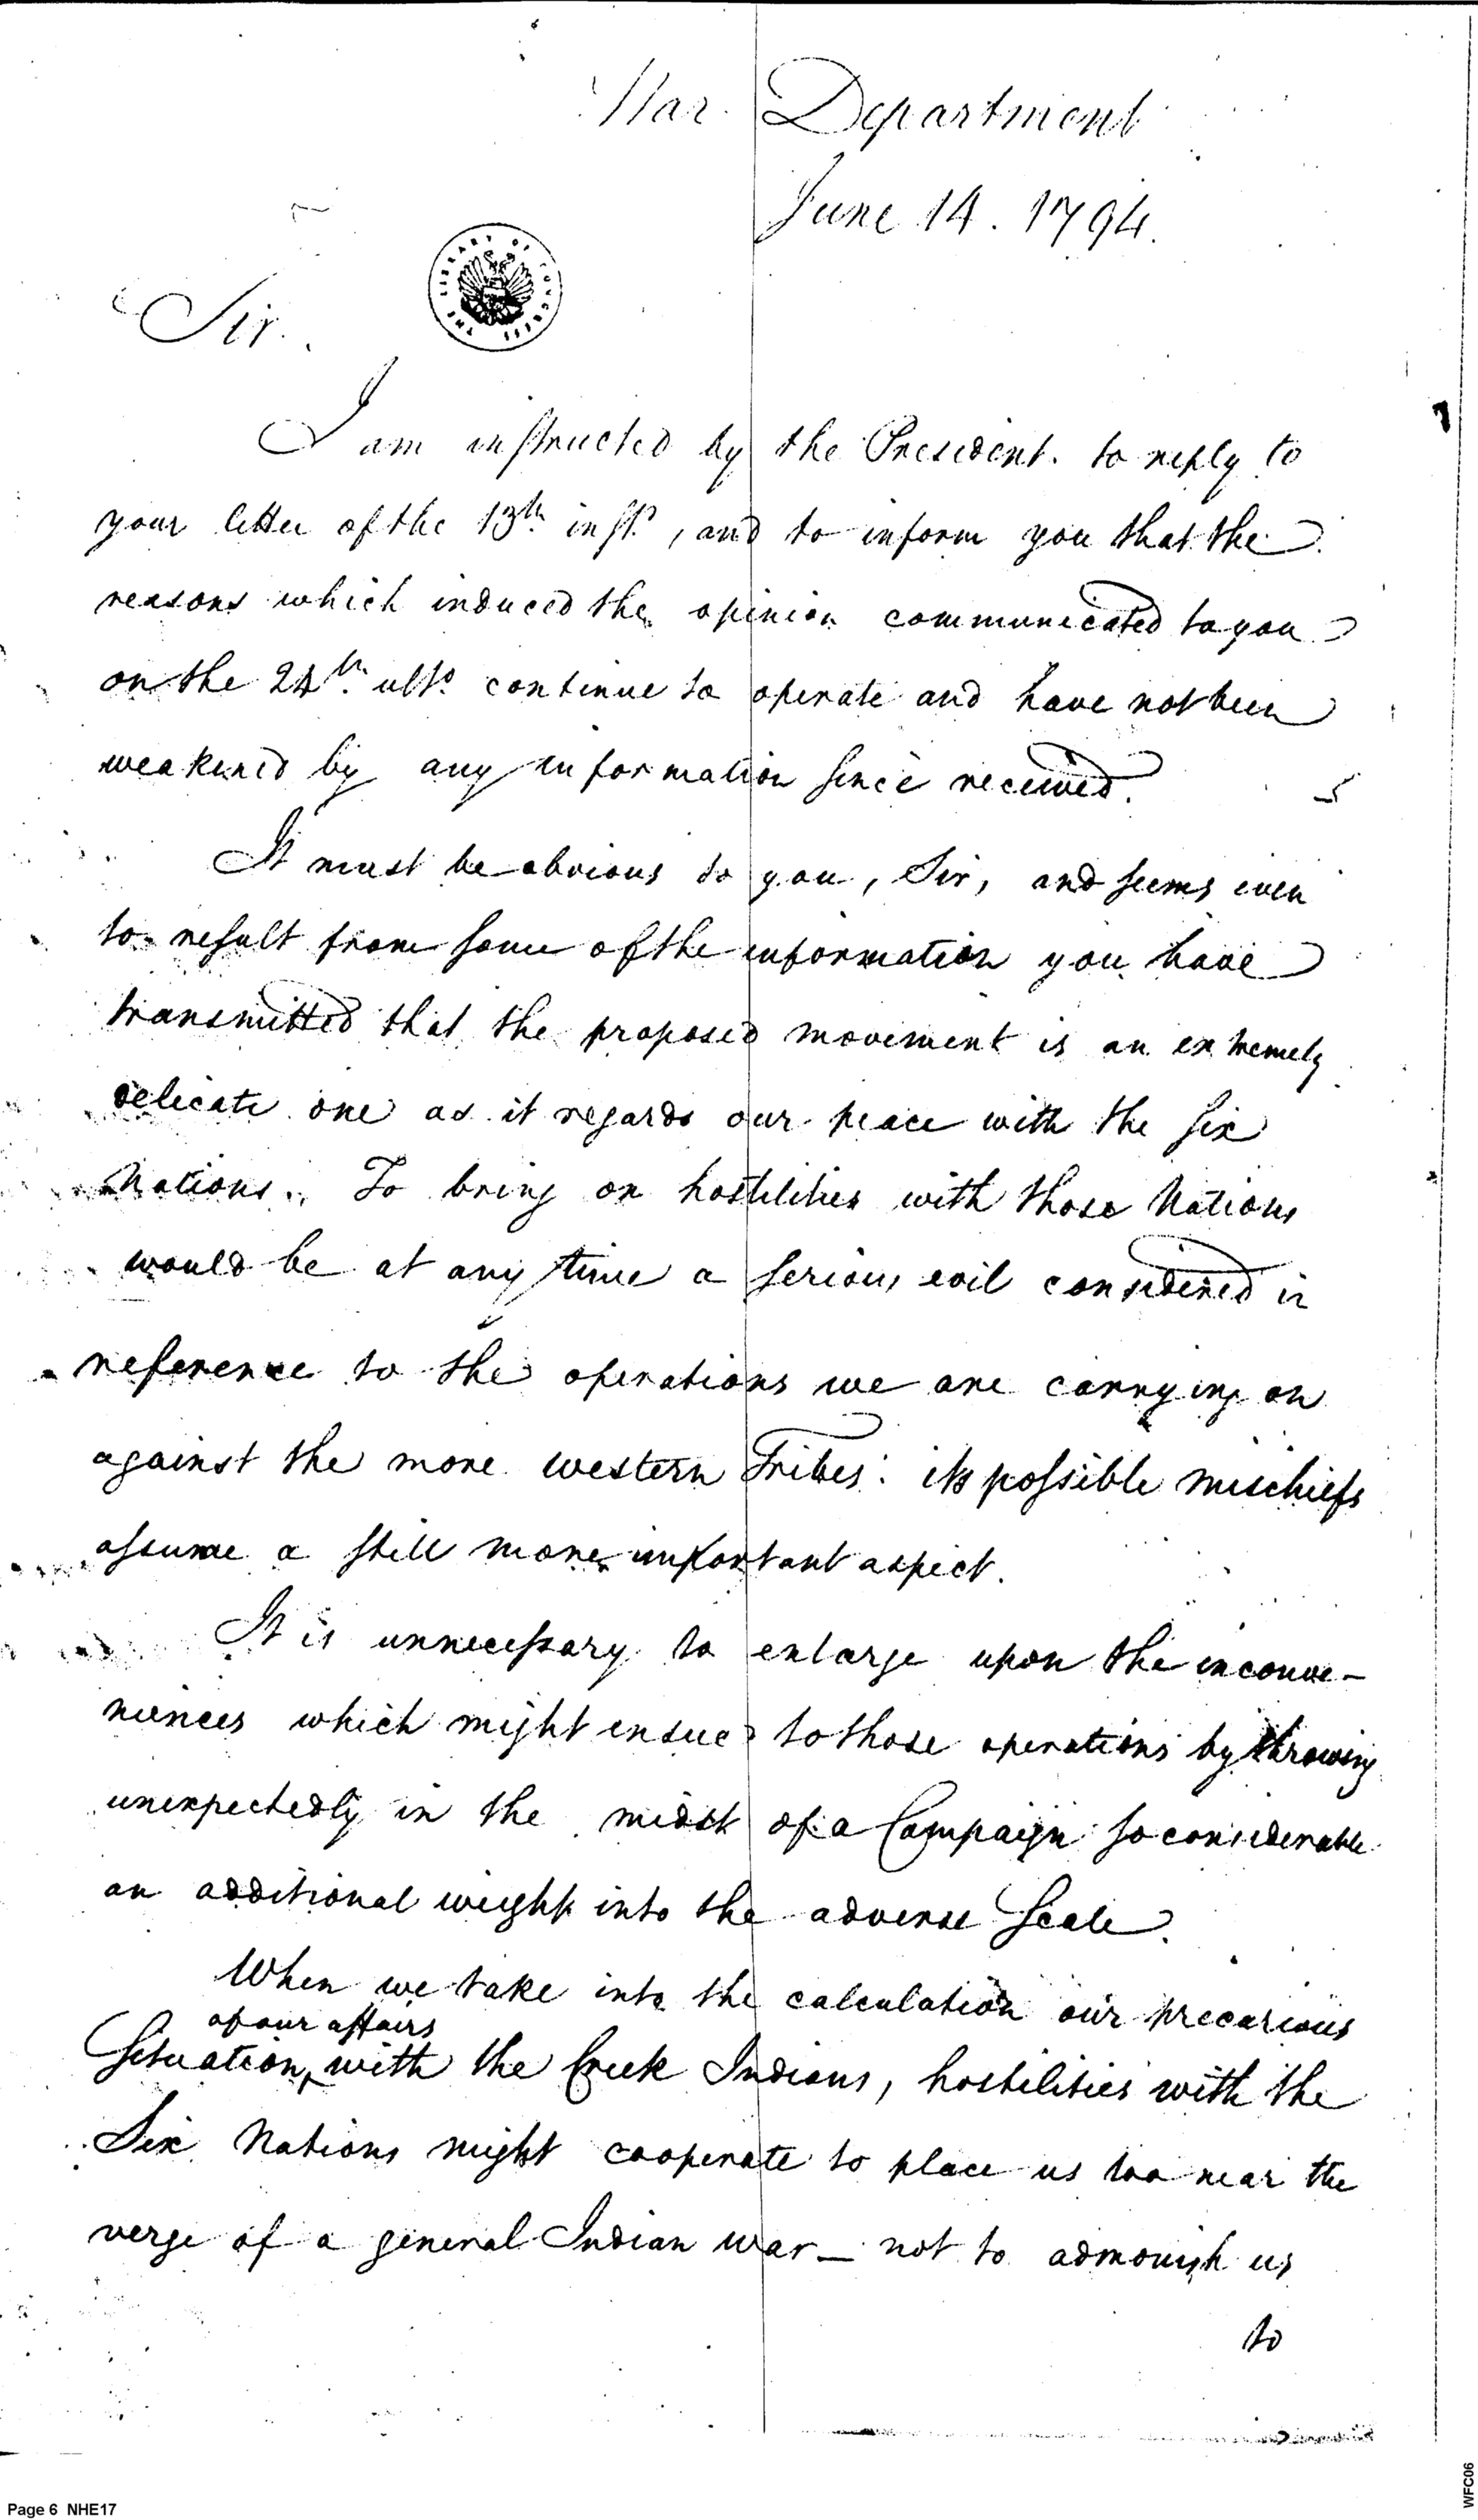 War Department
June 14. 1794.
THE LIBRARY OF CONGRESS
Sir.
I am instructed by the President. to reply to
your letter of the 13th. inst., and to inform you that the
reasons which induced the opinion communicated to you
on the 24th. ulto. continue to operate and have not been
weakened by any information since received.
It must be obvious to you, Sir, and seems even
to result from some of the information you have
transmitted that the proposed movement is an extremely
delicate one as it regards our peace with the Six
Nations. To bring on hostilities with those Nations
would be at any time a serious evil considered in
reference to the operations we are carrying on
against the more western Tribes: its possible mischiefs
assume a still more important aspect.
It is unnecessary to enlarge upon the inconve-
niences which might ensue to those operations by throwing
unexpectedly in the midst of a Campaign so considerable
an additional weight into the adverse Scale.
When we take into the calculation our precarious
of our affairs
Situation ‸ with the Creek Indians, hostilities with the
Six Nations might cooperate to place us too near the
verge of a general Indian war — not to admonish us
to
Page 6 NHE17
WFC06